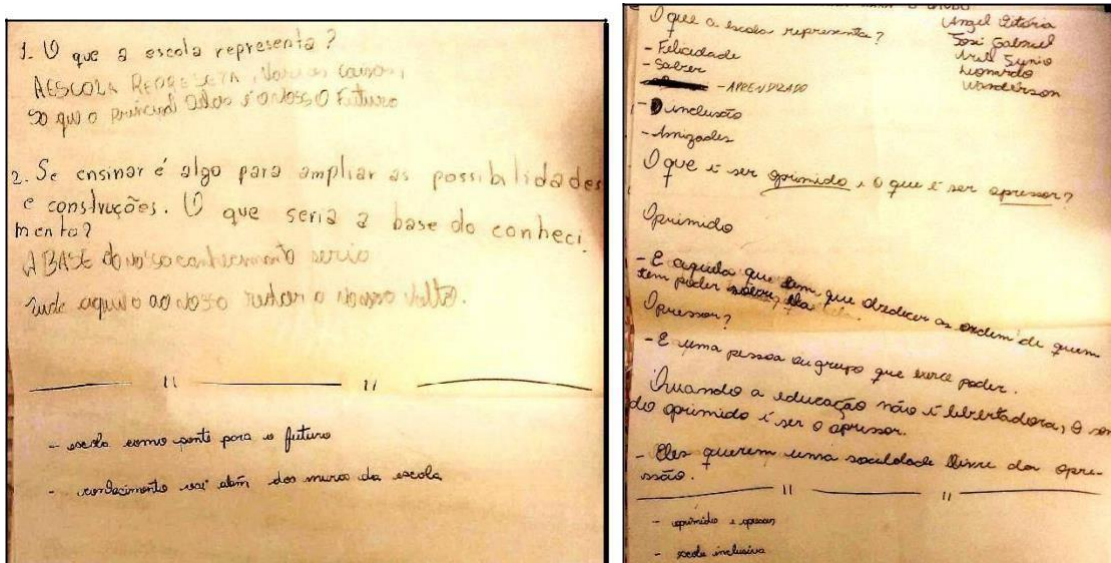 1. O que a escola representa?
AESCOLA REPRESETA, Varias coisas,
so que o principal delas é o Nosso Futuro
2. Se ensinar é algo para ampliar as possibilidades
e construções. O que seria a base do conheci.
mento?
A BASE do nosso conhecimento seria
tudo aquilo ao nosso redor a nossa volta.
11 11
- escola como ponte para o futuro
- conhecimento vai além dos muros da escola
O que a escola representa?
- Felicidade
- Saber
- APRENDIZADO
- inclusão
- Amizades
José Gabriel
Leonardo
Wanderson
O que é ser oprimido, o que é ser opressor?
Oprimido
- E aquela que tem que obedecer as ordem de quem
tem poder sobre ela
Opressor?
- E uma pessoa ou grupo que exerce poder.
Quando a educação não é libertadora, o son
do oprimido é ser o opressor.
- Eles querem uma sociedade livre da opre-
ssão.
11 11
- oprimido e opressor
- escola inclusiva